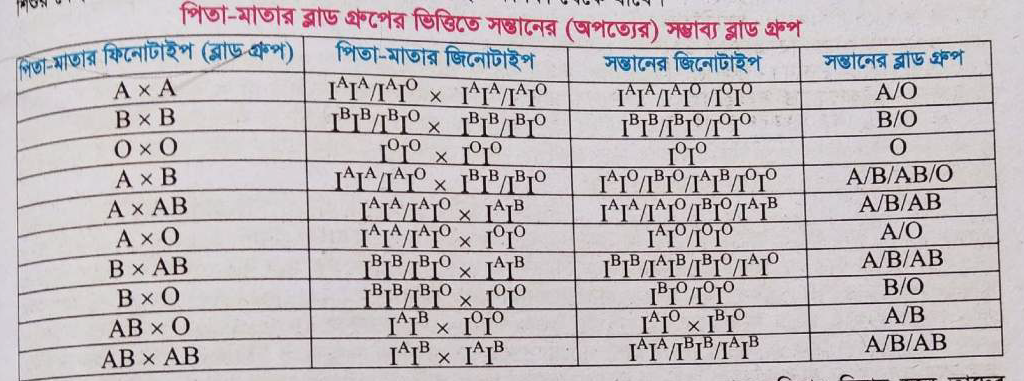 পিতা-মাতার ব্লাড গ্রুপের ভিত্তিতে সন্তানের (অপত্যের) সম্ভাব্য ব্লাড গ্রুপ
পিতা-মাতার ফিনোটাইপ (ব্লাড গ্রুপ) পিতা-মাতার জিনোটাইপ সন্তানের জিনোটাইপ সন্তানের ব্লাড গ্রুপ
A × A IᴬIᴬ/IᴬIᴼ × IᴬIᴬ/IᴬIᴼ IᴬIᴬ/IᴬIᴼ/IᴼIᴼ A/O
B × B IᴮIᴮ/IᴮIᴼ × IᴮIᴮ/IᴮIᴼ IᴮIᴮ/IᴮIᴼ/IᴼIᴼ B/O
O × O IᴼIᴼ × IᴼIᴼ IᴼIᴼ O
A × B IᴬIᴬ/IᴬIᴼ × IᴮIᴮ/IᴮIᴼ IᴬIᴼ/IᴮIᴼ/IᴬIᴮ/IᴼIᴼ A/B/AB/O
A × AB IᴬIᴬ/IᴬIᴼ × IᴬIᴮ IᴬIᴬ/IᴬIᴼ/IᴮIᴼ/IᴬIᴮ A/B/AB
A × O IᴬIᴬ/IᴬIᴼ × IᴼIᴼ IᴬIᴼ/IᴼIᴼ A/O
B × AB IᴮIᴮ/IᴮIᴼ × IᴬIᴮ IᴮIᴮ/IᴬIᴮ/IᴮIᴼ/IᴬIᴼ A/B/AB
B × O IᴮIᴮ/IᴮIᴼ × IᴼIᴼ IᴮIᴼ/IᴼIᴼ B/O
AB × O IᴬIᴮ × IᴼIᴼ IᴬIᴼ × IᴮIᴼ A/B
AB × AB IᴬIᴮ × IᴬIᴮ IᴬIᴬ/IᴮIᴮ/IᴬIᴮ A/B/AB